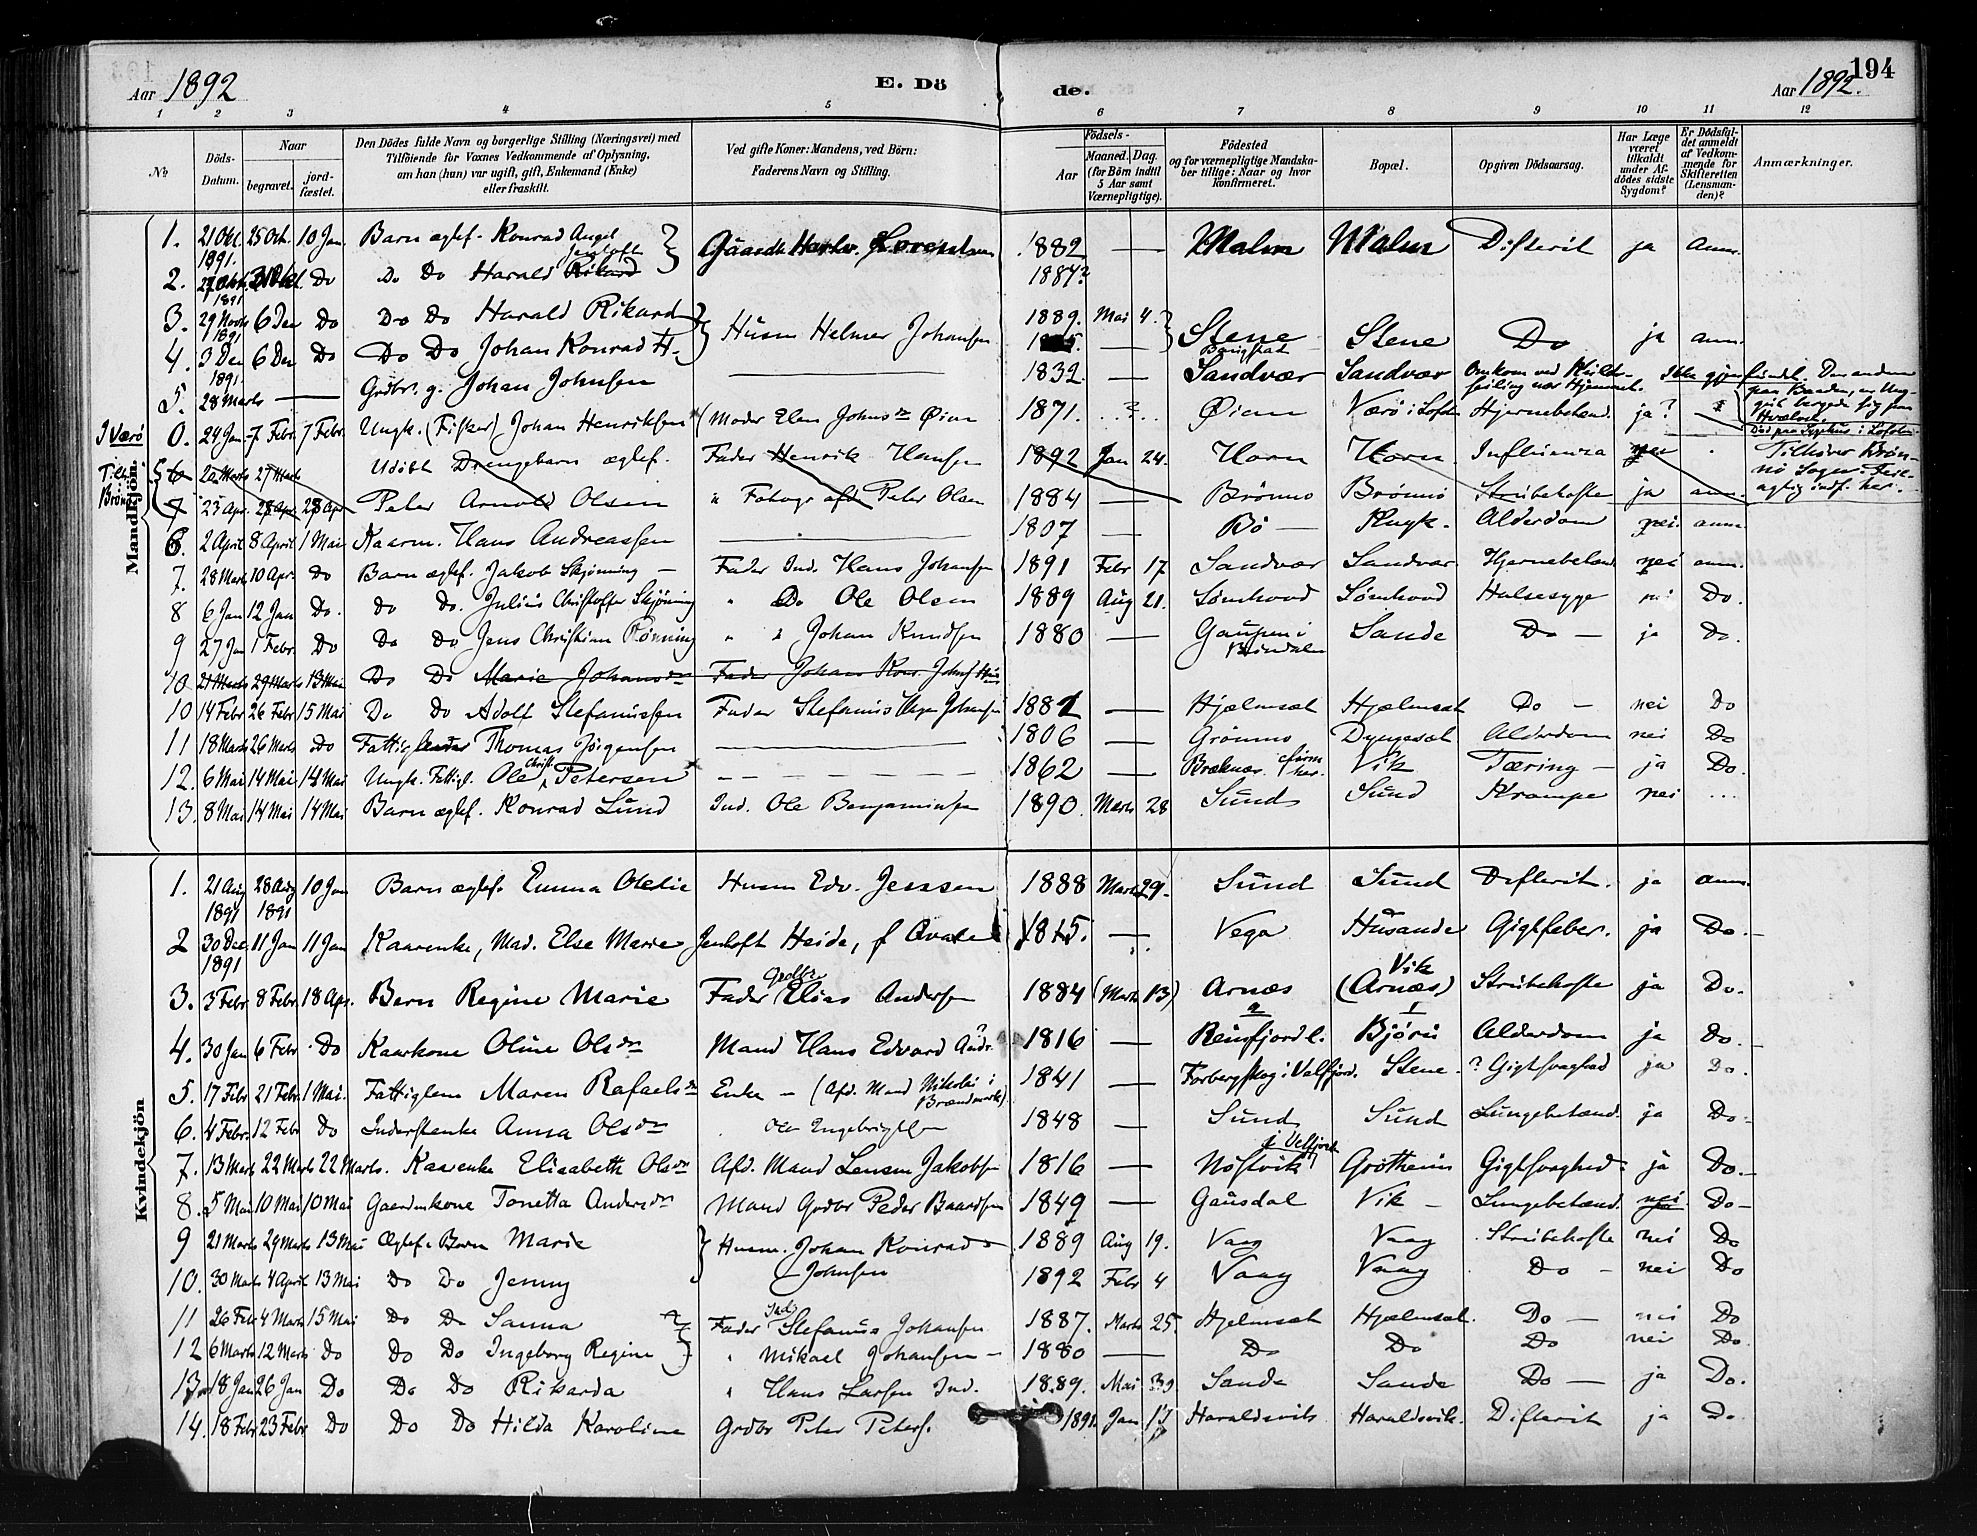 194
Aar 1892
E. Dö de.
Aar 1892.
1 2 3 4 5 6 7 8 9 10 11 12
№
Döds-Datum.
Naar
begravet.
jord-fæstet.
Den Dödes fulde Navn og borgerlige Stilling (Næringsvei) med
Tilföiende for Voxnes Vedkommende af Oplysning,
om han (hun) var ugift, gift, Enkemand (Enke)
eller fraskilt.
Ved gifte Koner: Mandens, ved Börn:
Faderens Navn og Stilling.
Födsels-
Aar
Maaned. Dag.
(for Börn indtil
5 Aar samt
Værnepligtige).
Födested
og for værnepligtige Mandska-
ber tillige: Naar og hvor
konfirmeret.
Bopæl.
Opgiven Dödsaarsag.
Har Læge
været
tilkaldt
under Af-
dödes sidste
Sygdom?
Er Dödsfal-
det anmeldt
af Vedkom-
mende for
Skifteretten
(Lensman-
den)?
Anmærkninger.
Mandkjön.
1. 21 Okt. 1891. 25 Oct. 10 Jan. Barn ægtef. Konrad Angel 1882 — Malm Malm Difterit ja anm.
2. 1891 Do Do Do Harald 1884?
3. 29 Novb 1891 6 Den Do Do Do Harald Rikard Husm Helmer Johansen 1889. Mai 4. Stene Stene Do ja anm.
4. 3 Den 1891. 6 Den Do Do Do Johan Konrad H.
5. 28 Marts — Grdbr. g. Johan Johnsen — 1832. — Sandvær Sandvær Omkom ved
Ikke gjenfundet. Den anden
I Værö
0. 24 Jan 7 Febr. 7 Febr. Ungk. (Fisker) Johan Henriksen (Moder Elen Johnsdn Øien 1871. ? Øien Værö i Lofoten Hjernebetænd. ja?
Död paa Sygehus i Lofoten
Tilh. Brönö
6 20 Marts 27 Marts Udöbt Drengebarn ægtef. Fader Henrik Hansen 1892 Jan 24. Horn Horn Influenza nei
Tilhörer Brön-
nö Sogn. Feil-
agtig indf. her.
7 23 Apr. 28 Apr. 28 Apr Peter Arnold Olsen 1884 — Brönnö Brönnö Strubehoste ja anm.
6. 2 April 8 April 1 Mai Kaarm. Hans Andreassen — 1807 — Bö — Rugk. Alderdom nei anm
7. 28 Marts 10 Apr. Do Barn ægtef. Jakob Skjönning — Fader Ind. Hans Johansen 1891 Febr 17 Sandvær Sandvær Hjernebetænd nei anm.
8 6 Jan 12 Jan Do. Do Do. Julius Christoffer Skjöning " Do Ole Olsen 1889 Aug 21. Sömhovd Sömhovd Halsesyge nei Do.
9 27 Jan 1 Febr. Do Do Do Jens Christian Rönning " " Johan Knudsen 1880 — Gaupen i Bindalen Sande Do — ja Do.
10 21 Marts 29 Marts 13 Mai Do Do Marie Johansdn Fader Johan Kon. Johns Hus
10 14 Febr 26 Febr 15 Mai Do Do Adolf Stefanussen Fader Stefanus Johansen 1882 — Hjelmsæt Hjelmsæt Do — nei Do
11 18 Marts 26 Marts Do Fattiglem Thomas Jörgensen — 1806 — Grönmo Dyngeset Alderdom nei Do
12. 6 Mai 14 Mai 14 Mai Ungk. Fattigl. Ole Christ. Petersen — 1862 — Brækmær Vik Tæring — ja Do.
13. 8 Mai 14 Mai 14 Mai Barn ægtef. Konrad Lund Ind. Ole Benjaminsen 1890 Marts 28 Sund Sund Krampe nei ...
Kvindekjön
1. 21 Aug 1891 28 Aug 1891 10 Jan Barn ægtef. Emma Oletie Husm Edv. Jenssen 1888 Marts 29. Sund Sund Difterit. ja anm.
2 30 Dec. 1891 11 Jan 11 Jan Kaarenke, Mad. Else Marie Jenhoft Heide, f 1815. — Vega Husande Gigtfeber. ja Do. —
3. 3 Febr. 8 Febr. 18 Apr. Barn Regine Marie Fader Grdbr Elias Andersen 1884 (Marts 13) Arnæs Vik (Arnæs) Strubehoste ja Do.
4. 30 Jan 6 Febr Do Kaarkone Oline Olsdn Mand Hans Edvard Andr. 1816 — Reinfjord Björen Alderdom ja Do. —
5. 17 Febr 21 Febr. 1 Mai. Fattiglem Maren Rafaelsdn Enke — (Afd. Mand Nikolai i Brændmark) 1841 — Forbergskog i Velfjord. Stene. ? Gigtsvaghed ja Do.
6. 4 Febr. 12 Febr Do Inderstenke Anna Olsdn Ole Engebrigtsen 1848 — Sund Sund Lungebetænd. ja Do.
7. 13 Marts 22 Marts 22 Marts. Kaarenke Elisabeth Olsdn Afd. Mand Jakobsen 1816 — Nöstvik i Velfjord Grötheim Gigtsvaghed ja Do. —
8. 5 Mai 10 Mai 10 Mai Gaardmkone Tonetta Andersdn Mand Grdbr Peder Baardsen 1849 — Gausdal Vik — Lungebetænd. nei Do —
9 21 Marts 29 Marts 13 Mai Ægtef. Barn Marie Husm. Johan Konrad Johnsen 1889 Aug 19. Vaag Vaag Strubehoste nei Do
10. 30 Marts 4 April 13 Mai Do Do Jenny 1892 Febr 4 Vaag Vaag Do — nei Do
11 26 Febr 4 Marts 15 Mai Do Do Sanna Fader Ind. Stefanus Johansen 1887. Marts 25 Hjelmsæt Hjelmsæt. Do — nei Do
12 6 Marts 12 Marts Do Do Do Ingeborg Regine " Mikael Johansen — 1880 — Do Do Do nei Do.
13 18 Jan 26 Jan Do Do Do Rikarda " Hans Larsen Ind. 1889. Mai 30 Sande Sande Do — ja Do.
14. 18 Febr 23 Febr Do Do Do Hilda Karoline Grdbr Peter Peters. 1891. Jan 17 Haraldsvik Haraldsvik. Difterit ja Do